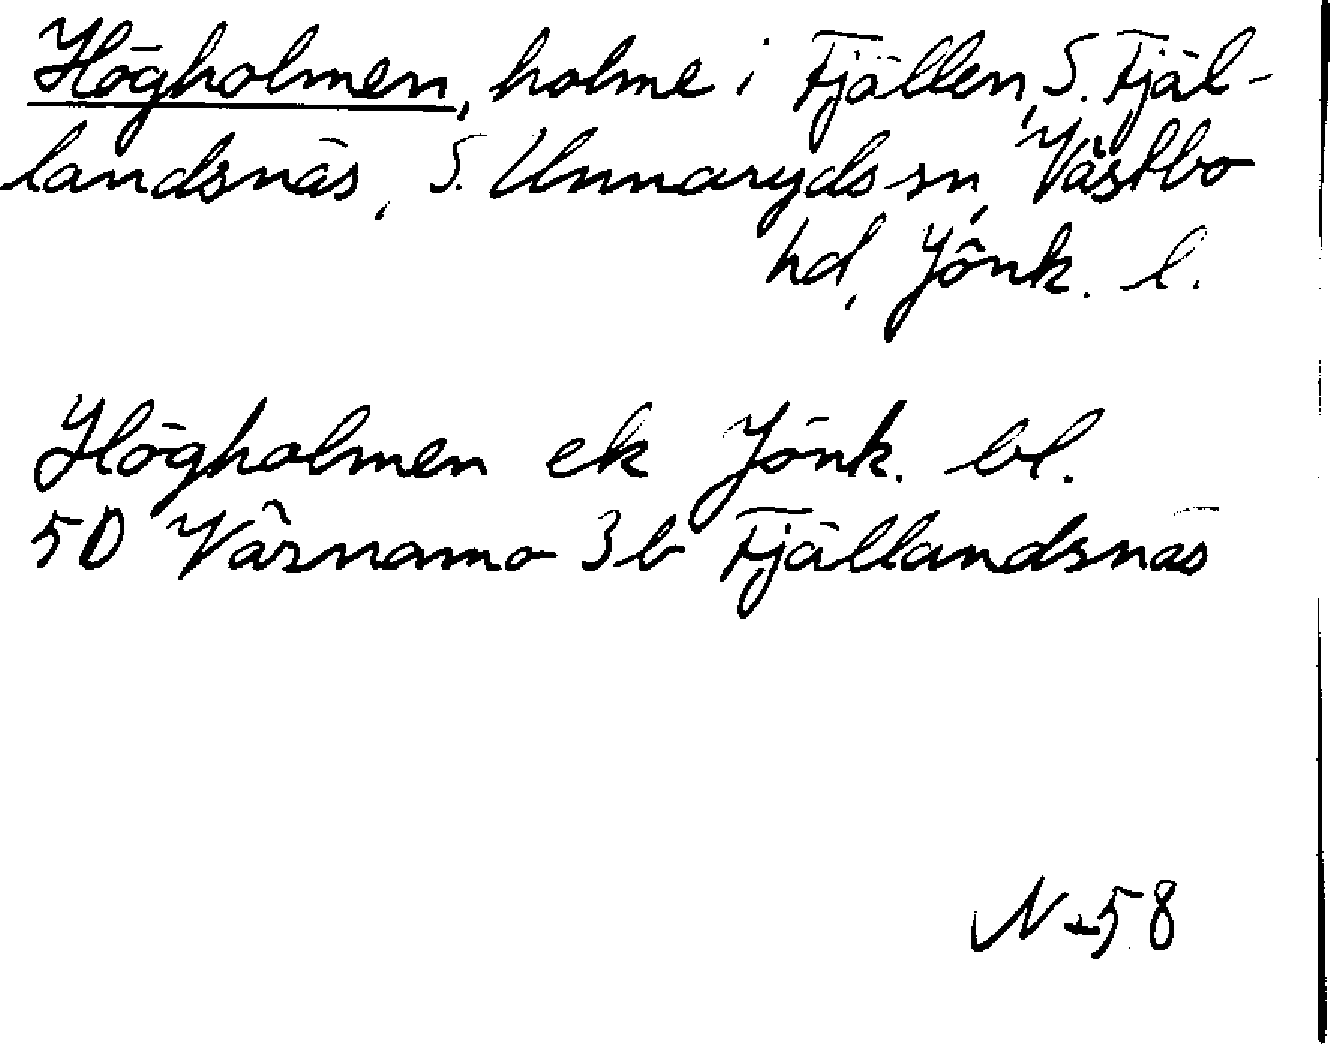 Högholmen, holme i Fjällen, S. Fjäl-
landsnäs, S. Unnaryds sn, Västbo
hd, Jönk. l.
Högholmen ek Jönk. bl.
5D Värnamo 3b Fjällandsnäs
N-58